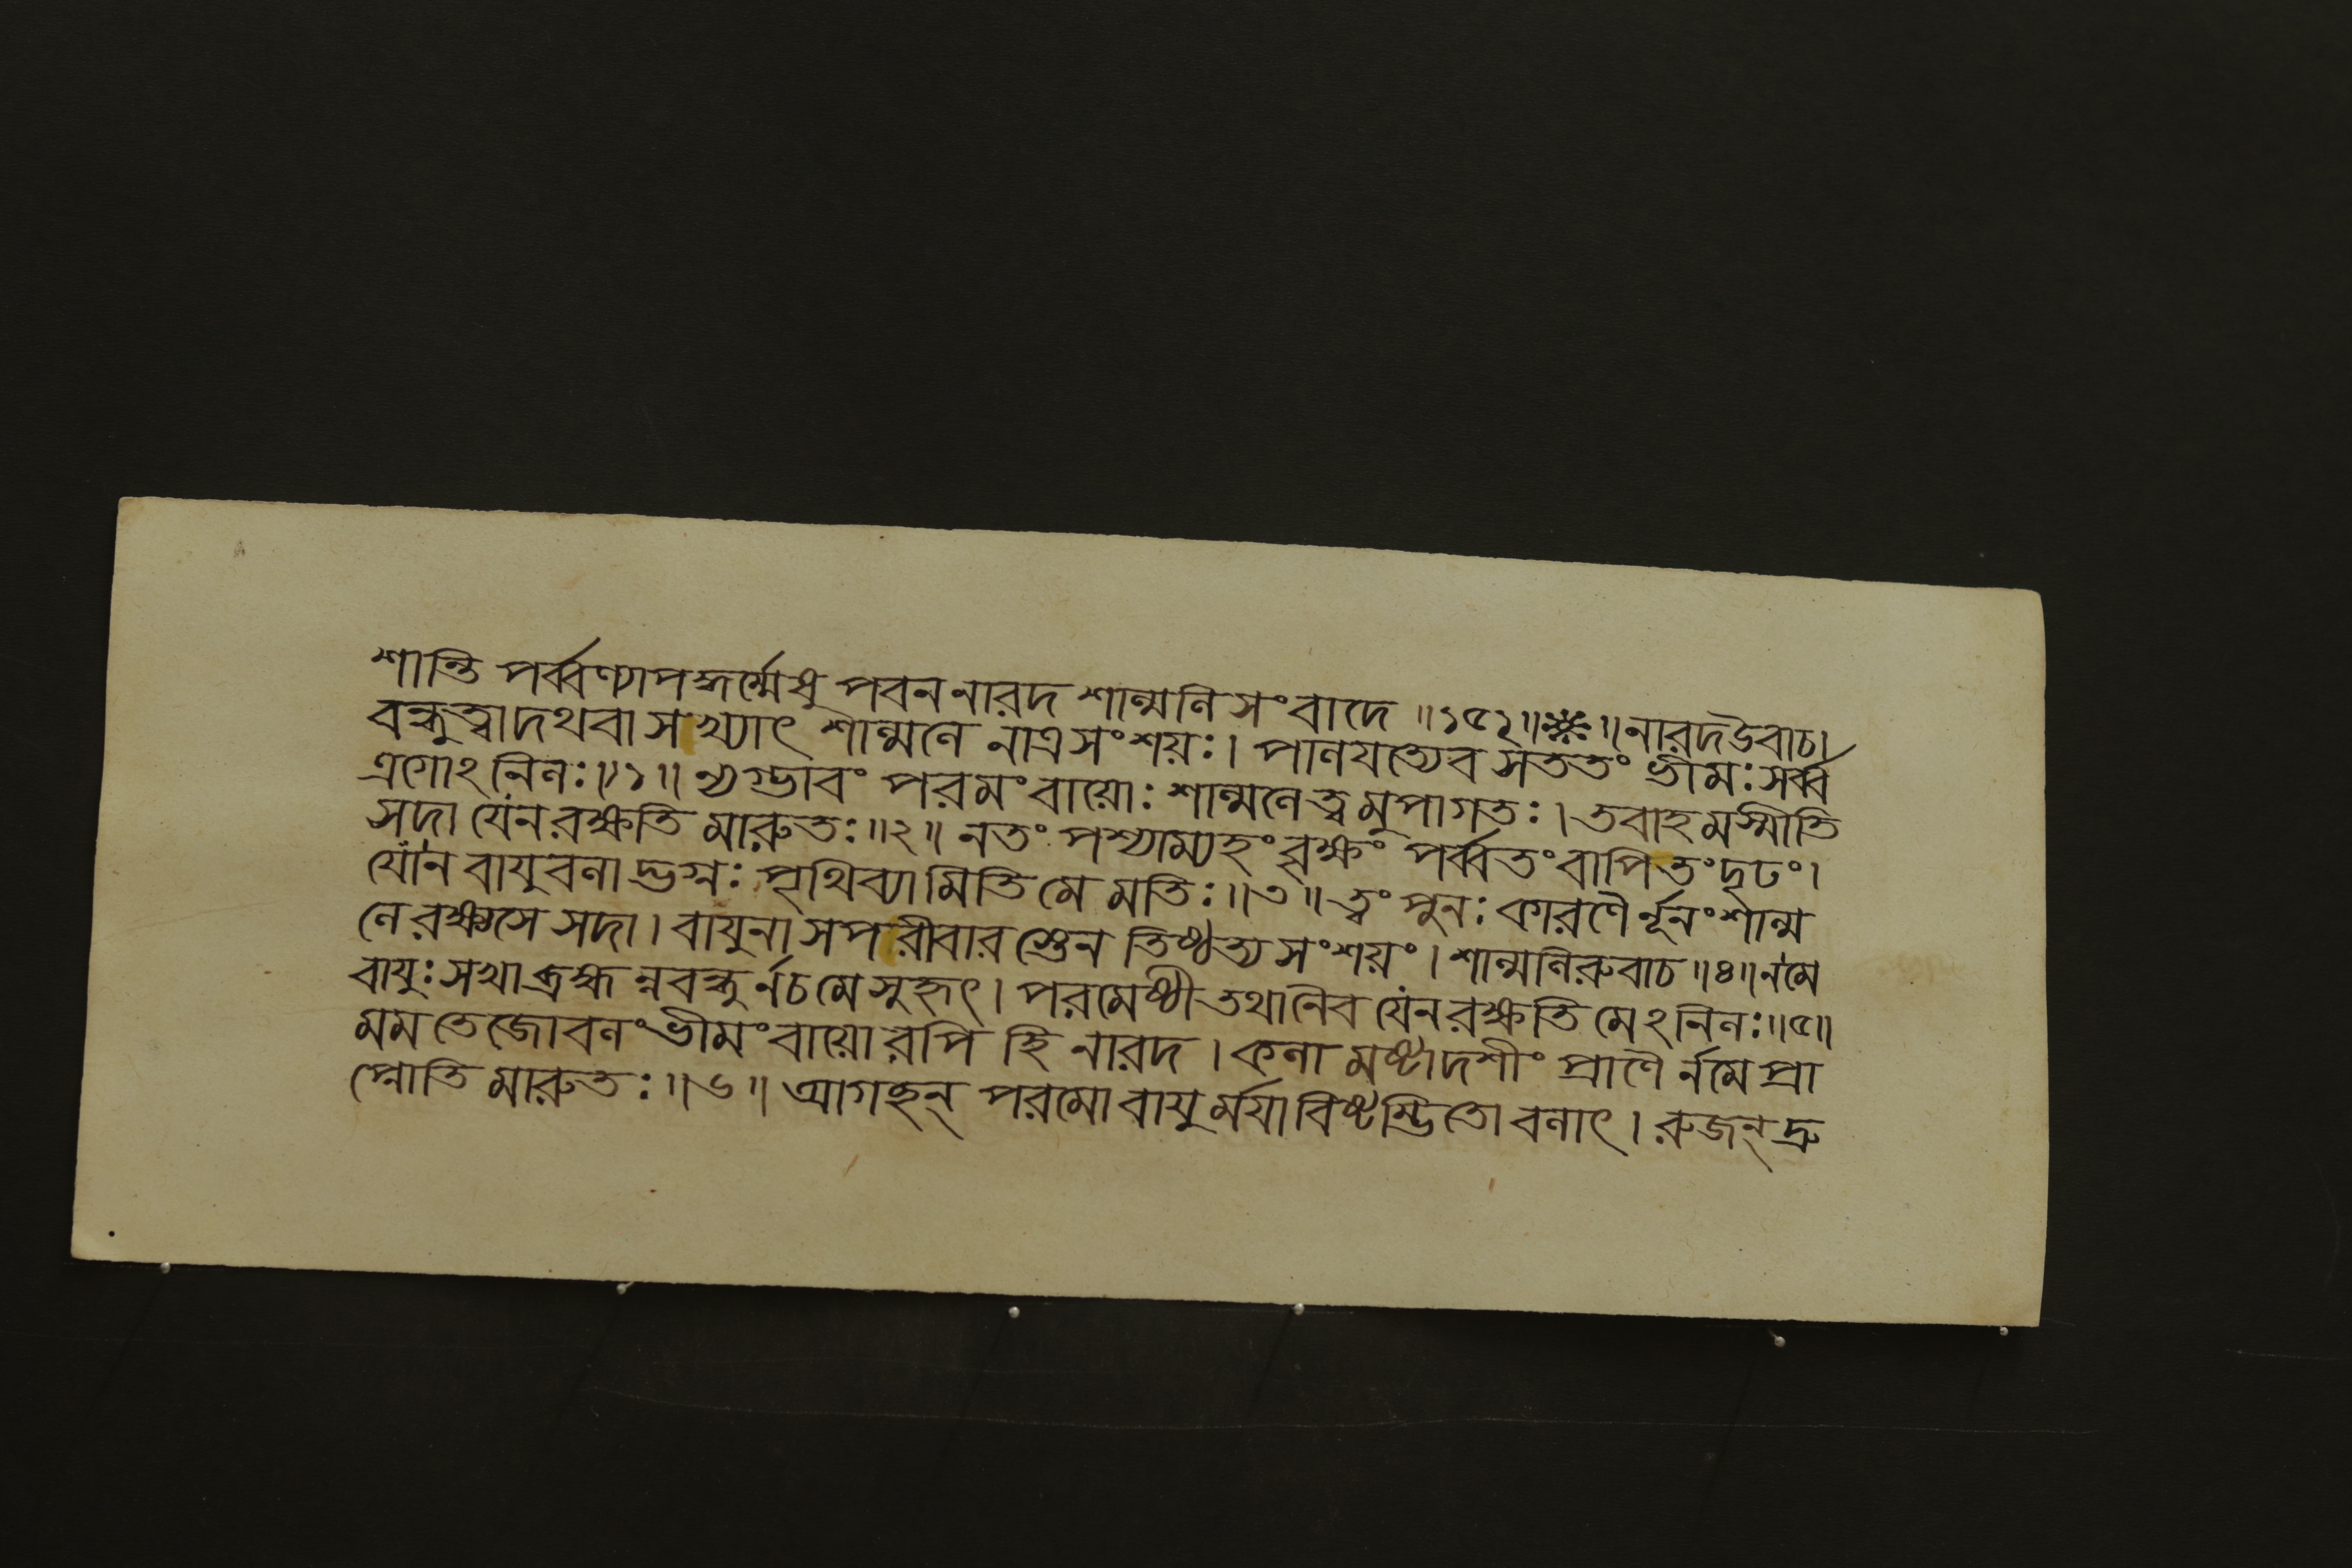 শান্তি পর্ব্বণ্যাপদ্ধর্ম্মেষু পবননারদ শাল্মলিসংবাদে ॥১৫২॥❋॥নারদউবাচ।
বন্ধুত্বাদথবা সখ্যাৎ শাল্মলে নাত্রসংশয়ঃ। পালযত্যেব সততং ভীমঃসর্ব্ব
ত্রগোঽনিলঃ॥১॥ ন্যগ্ভাবং পরমংবায়োঃ শাল্মলেত্বমুপাগতঃ। তবাহমস্মীতি
সদা যেনরক্ষতি মারুতঃ॥২॥ নতং পশ্যাম্যহং বৃক্ষং পর্ব্বতংবাপিতংদৃঢং।
যোন বাযুবলাদ্ভগ্নঃ পৃথিব্যামিতি মে মতিঃ॥৩॥ ত্বং পুনঃ কারণৈর্নূনংশাল্ম
লেরক্ষ্যসে সদা। বাযুনা সপরীবারস্তেন তিষ্ঠত্যসংশয়ং। শাল্মলিরুবাচ॥৪॥নমে
বাযুঃসখাব্রহ্মন্নবন্ধুর্নচমেসুহৃৎ। পরমেষ্ঠীতথানৈব যেনরক্ষতি মেঽনিলঃ॥৫॥
মম তেজোবলংভীমংবায়োরপি হি নারদ। কলামষ্টাদশীং প্রাণৈর্নমে প্রা
প্নোতি মারুতঃ॥৬॥ আগচ্ছন্ পরমোবাযুর্ময়াবিষ্টম্ভিতোবলাৎ। রুজন্দ্রু